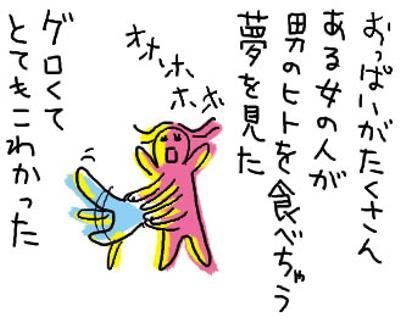 おっぱいがたくさん
ある女の人が
男のヒトを食べちゃう
夢を見た
オホホホホ
ゲロくて
とてもこわかった